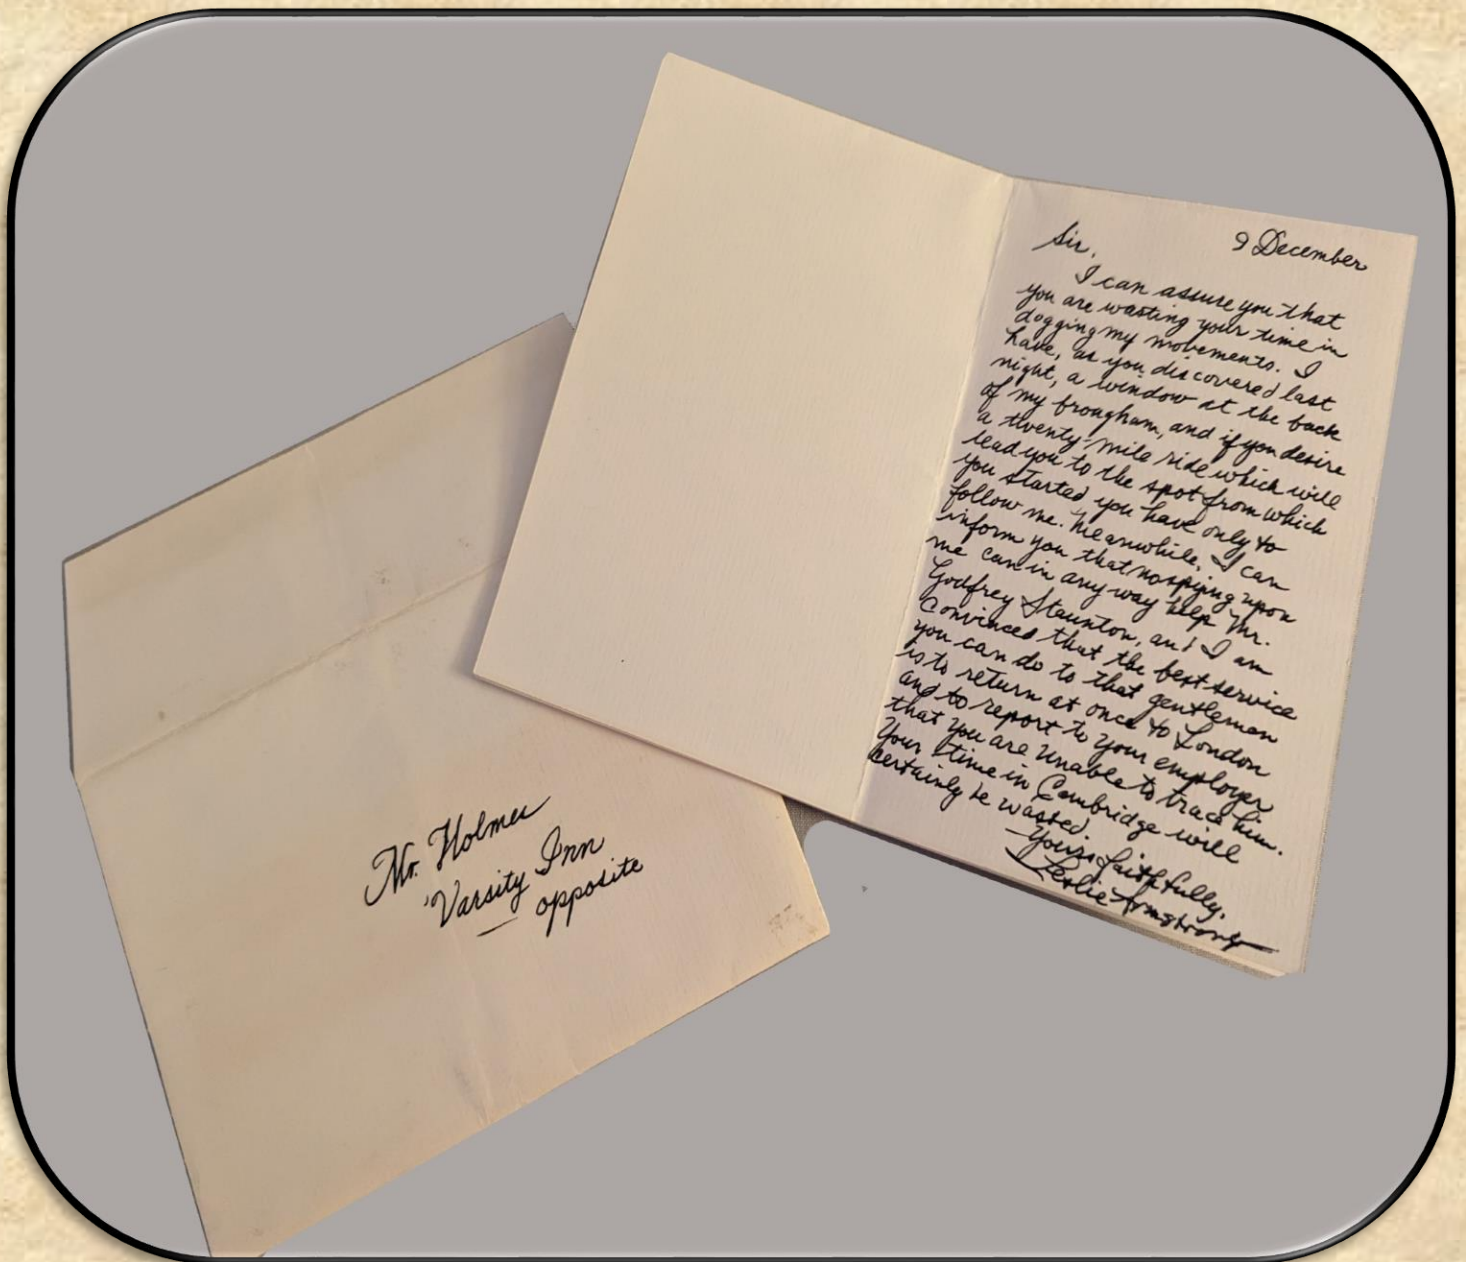 Mr. Holmes
'Varsity Inn
opposite
9 December
Sir,
I can assure you that
you are wasting your time in
dogging my movements. I
have, as you discovered last
night, a window at the back
of my brougham, and if you desire
a twenty-mile ride which will
lead you to the spot from which
you started you have only to
follow me. Meanwhile, I can
inform you that no spying upon
me can in any way help Mr.
Godfrey Staunton, and I am
convinced that the best service
you can do to that gentleman
is to return at once to London
and to report to your employer
that you are unable to trace him.
Your time in Cambridge will
certainly be wasted.
Yours faithfully,
Leslie Armstrong